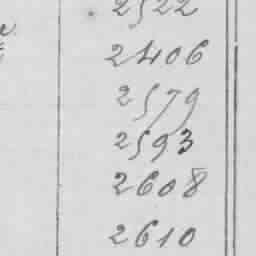 2522
2406
2579
2593
2608
2610